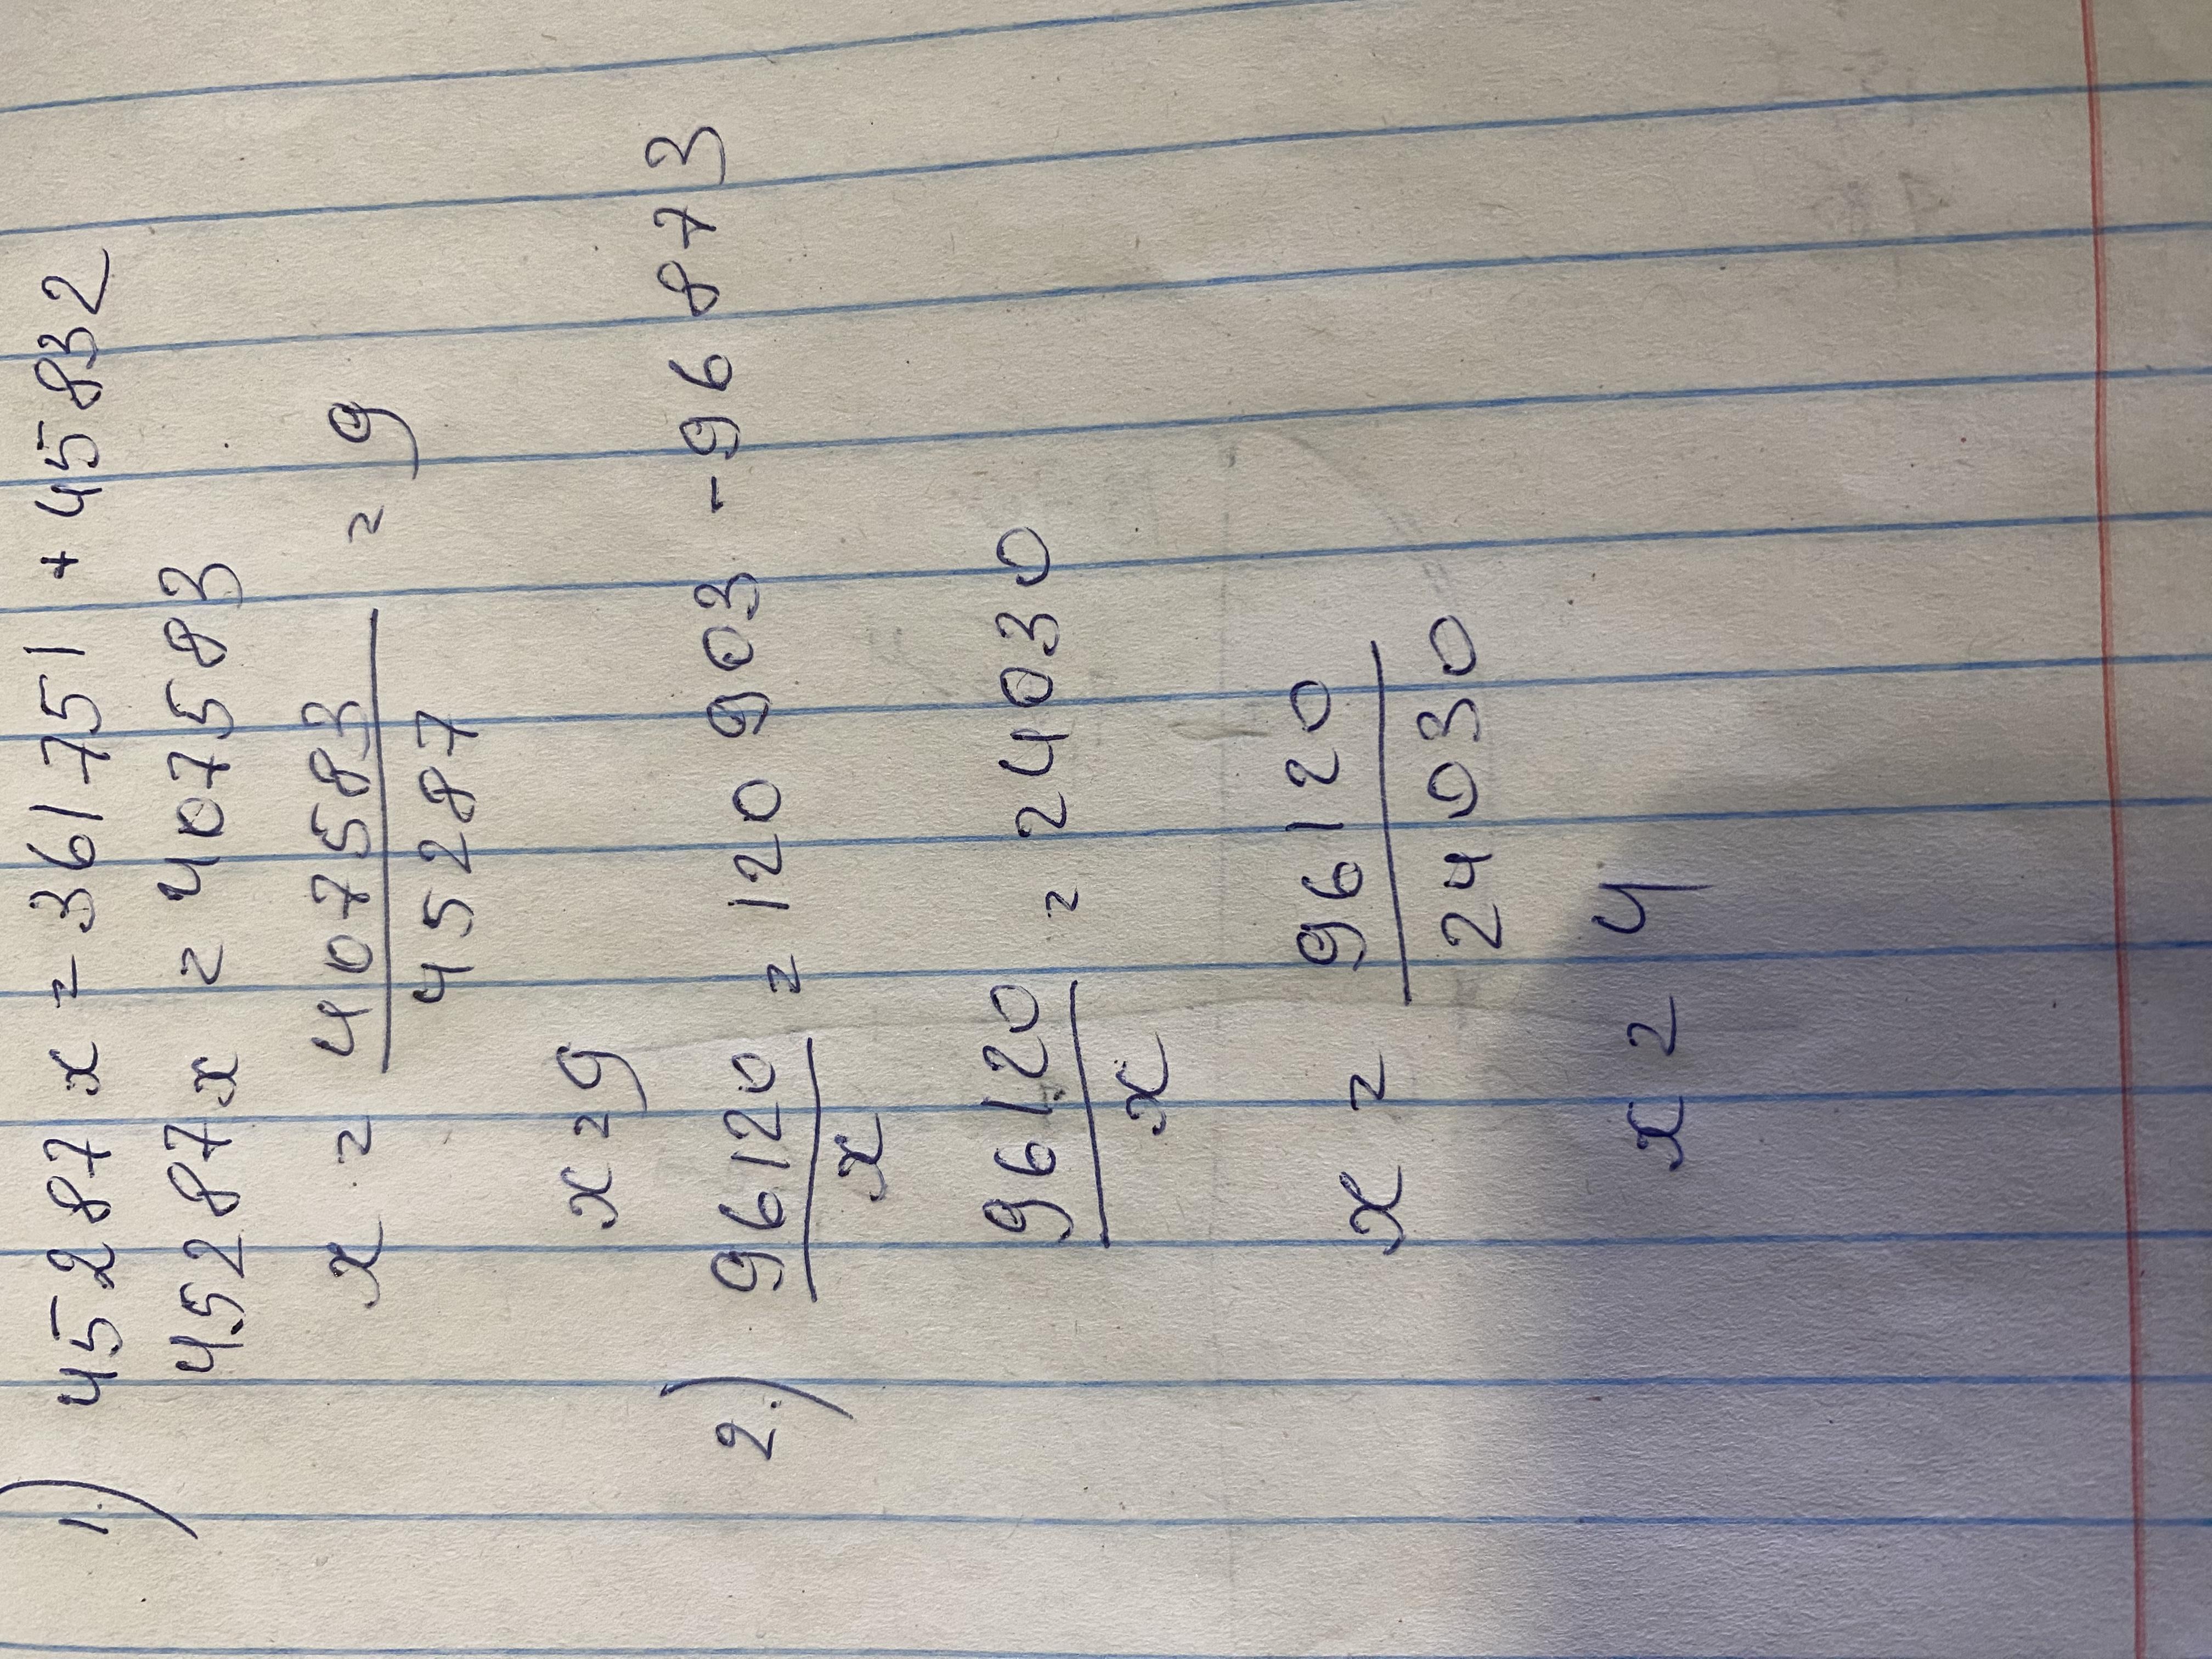 1.) 45287x = 361751 + 45832
45287x = 407583
x = 407583/45287 = 9
x = 9
2.) 96120/x = 120903 - 96873
96120/x = 24030
x = 96120/24030
x = 4